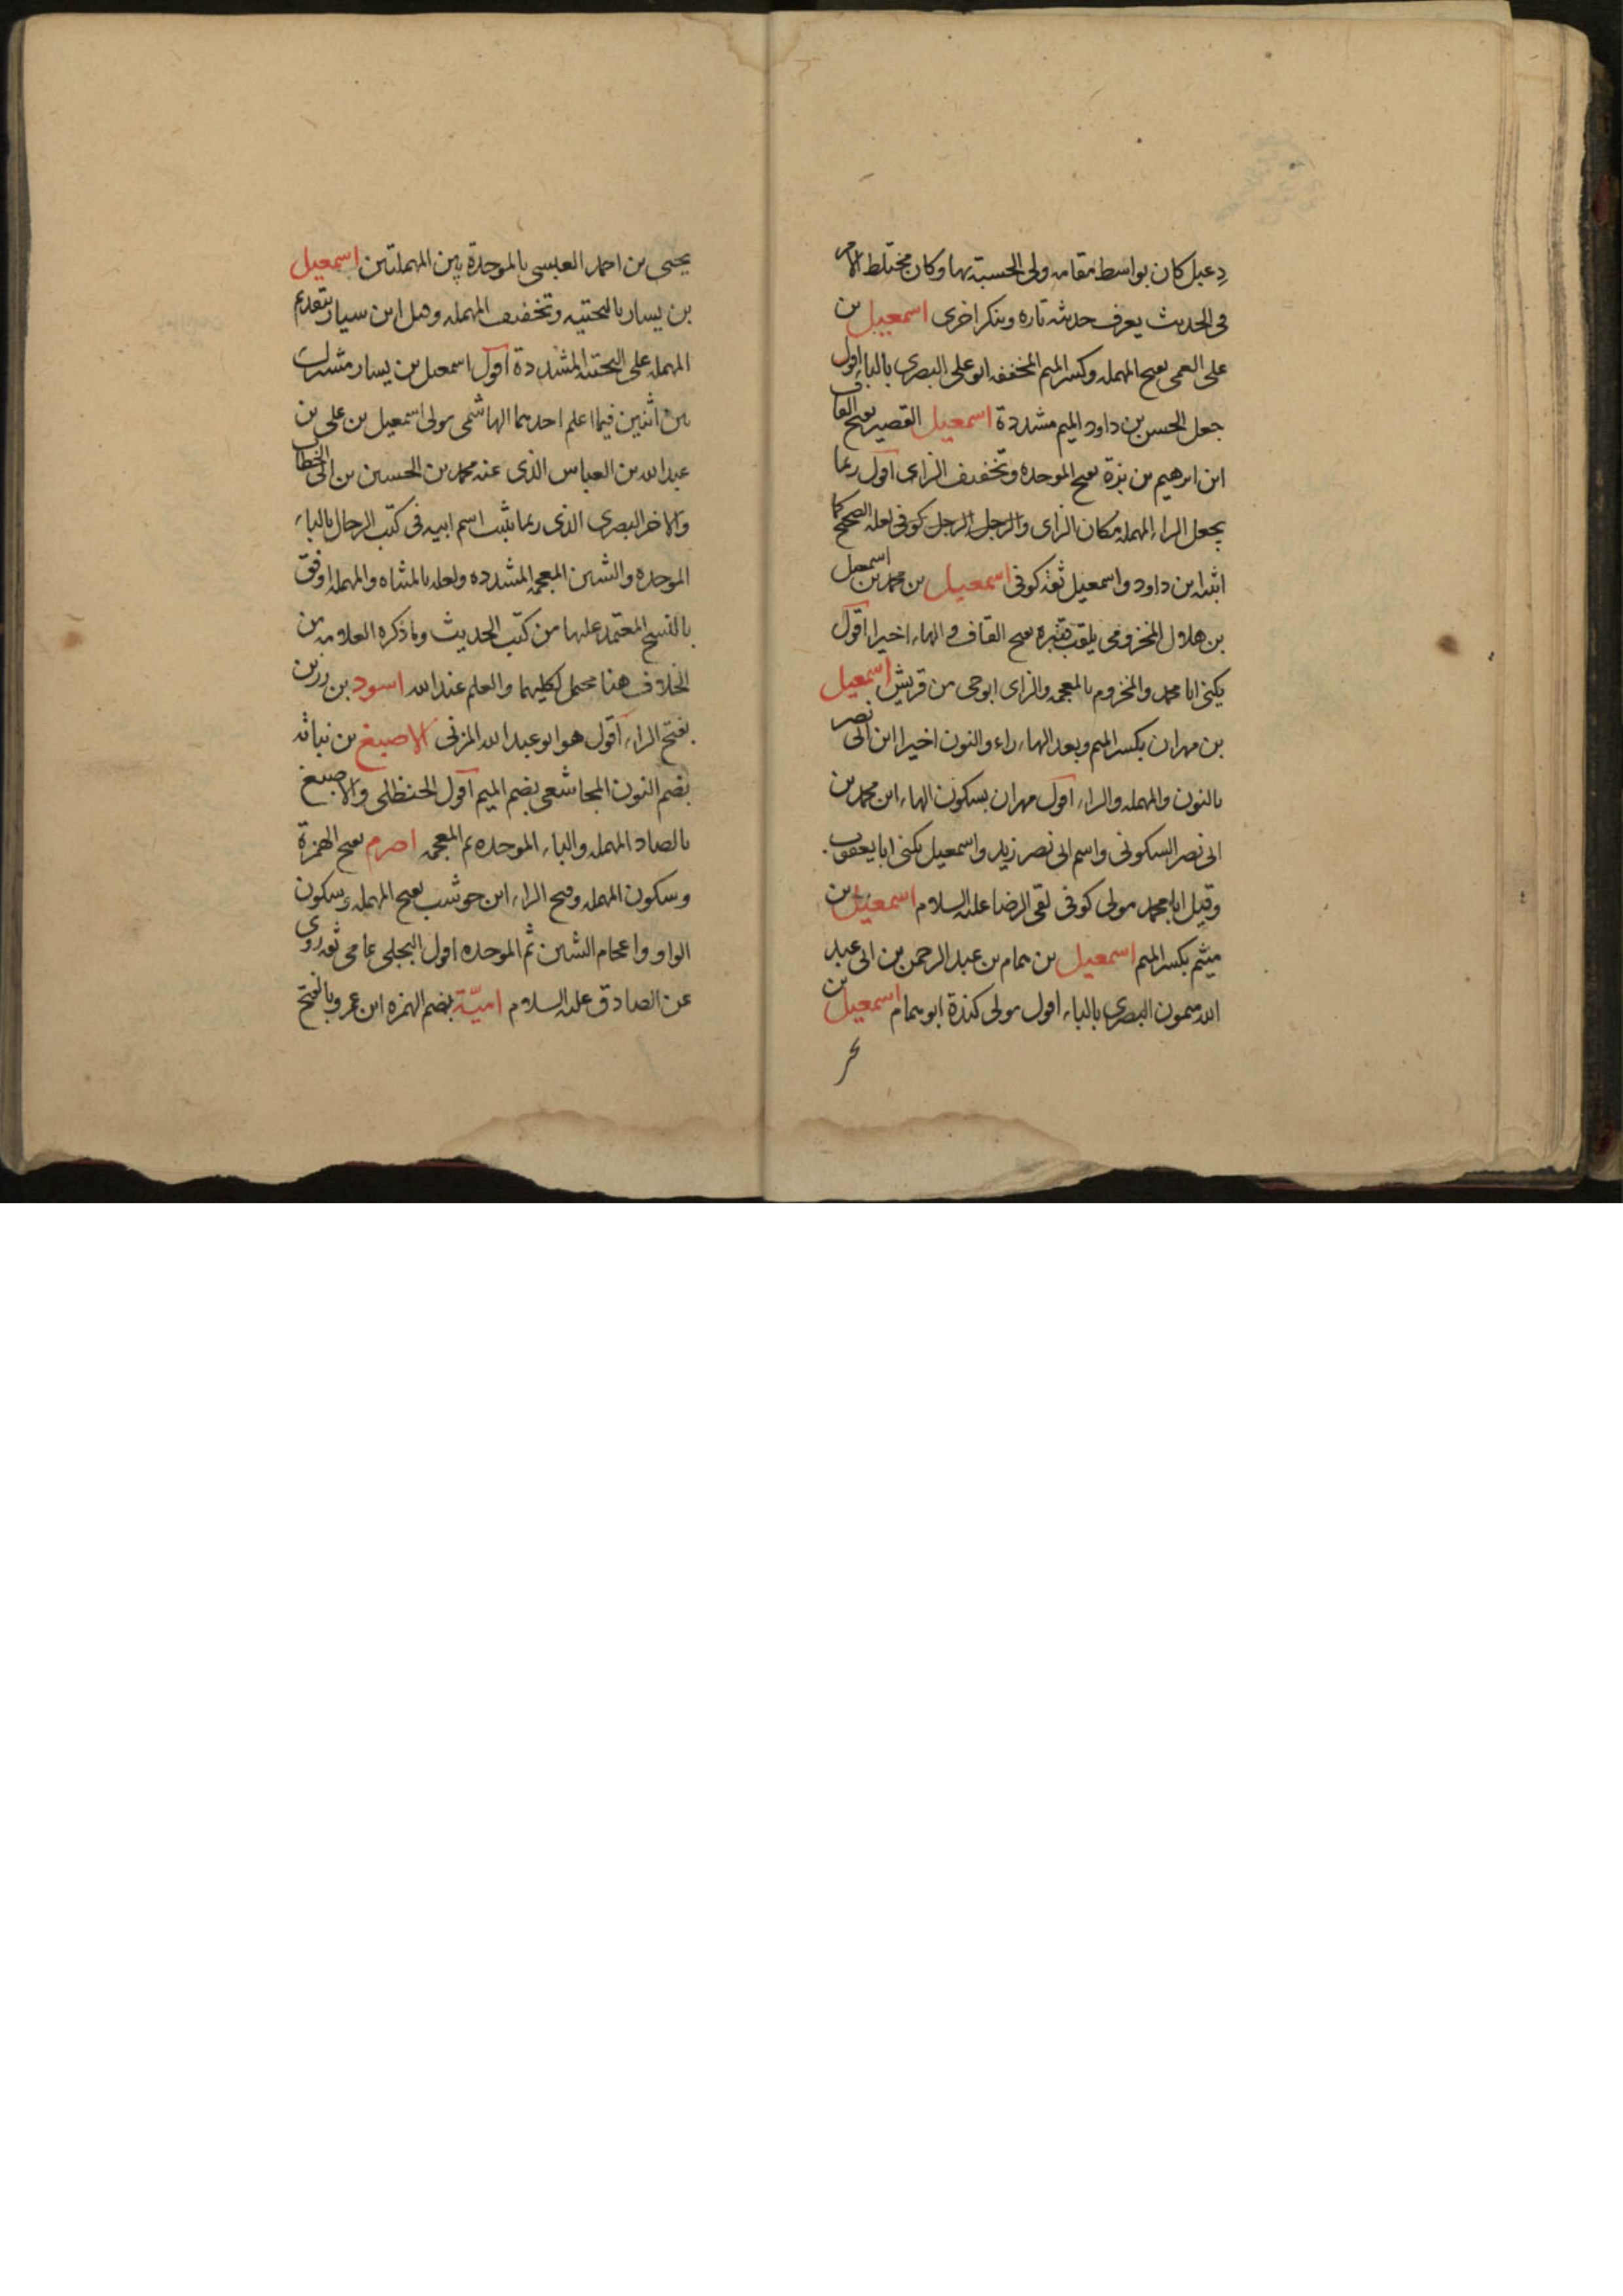 دِعبل كان بواسط مقامه ولى الحسبة بها وكان مختلط الامر
فى الحديث يعرف حديثه تاره وينكر اخرى اسمعيل بن
على العمى بفتح المهمله وكسر الميم المخففه ابو على البصرى بالباء اقول
جعل الحسن بن داود الميم مشددة اسمعيل القصير بفتح القاف
ابن ابرهيم بن بزة بفتح الموحده وتخفيف الزاى اقول ربما
يجعل الراء المهمله مكان الزاى والرجل الرجل كوفى لعله الصحيح كما
اثبته ابن داود واسمعيل ثقه كوفى اسمعيل بن محمد بن اسمعيل
بن هلال المخزومى يلقب قنبره بفتح القاف والهاء اخيرا اقول
يكنى ابا محمد والمخزوم بالمعجمه والزاى ابوحى من قريش اسمعيل
بن مهران بكسر الميم وبعد الهاء راء والنون اخيرا ابن ابى نصر
بالنون والمهمله والراء اقول مهران بسكون الهاء ابن محمد بن
ابى نصر السكونى واسم ابى نصر زيد واسمعيل يكنى ابا يعقوب
وقيل ابا محمد مولى كوفى لقى الرضا عليه السلام اسمعيل بن
ميثم بكسر الميم اسمعيل بن همام بن عبد الرحمن بن ابى عبد
الله ميمون البصرى بالباء اقول مولى كندة ابو همام اسمعيل بن
يحيى بن احمد العبسى بالموحدة بين المهملتين اسمعيل
بن يسار بالتحتيه وتخفيف المهمله وهل ابن سيار بتقديم
المهمله على التحتيه المشددة اقول اسمعيل بن يسار مشترك
بين اثنين فيما اعلم احدهما الهاشمى مولى اسمعيل بن على بن
عبد الله بن العباس الذى عنه محمد بن الحسين بن ابى الخطاب
والاخر البصرى الذى ربما يثبت اسم ابيه فى كتب الرجال بالباء
الموحده والشين المعجمه المشدده ولعله بالمثناه والمهمله اوفق
بالنسخ المعتمد عليها من كتب الحديث وما ذكره العلامه من
الخلاف هنا محتمل لكليهما والعلم عند الله اسود بن رزين
بفتح الراء اقول هو ابو عبد الله المزنى الاصبغ بن نباته
بضم النون المجاشعى بضم الميم اقول الحنظلى والاصبغ
بالصاد المهمله والباء الموحده ثم المعجمه اصرم بفتح الهمزة
وسكون المهمله وفتح الراء ابن حوشب بفتح المهمله وسكون
الواو واعجام الشين ثم الموحده اقول البجلى عامى ثقه روى
عن الصادق عليه السلام اميّة بضم الهمزه ابن عمرو بالفتح